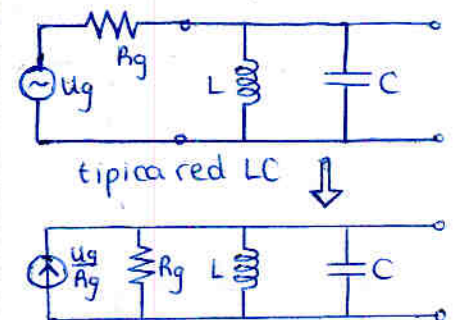 Rg
Ug
L
C
tipica red LC
Ug
Rg
Rg
L
C